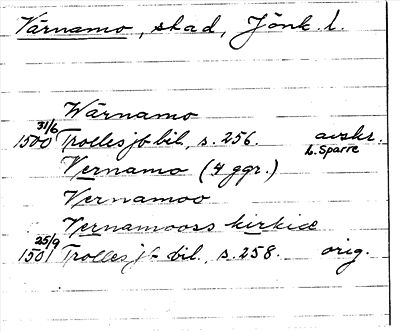 Värnamo, stad, Jönk. l.
Wärnamo
31/6 1500 Trolles jb bil., s. 256. avskr.
L. Sparre
Vernamo (4 ggr.)
Vernamoo
Vernamooss kirkiæ
25/9 1501 Trolles jb bil., s. 258. orig.